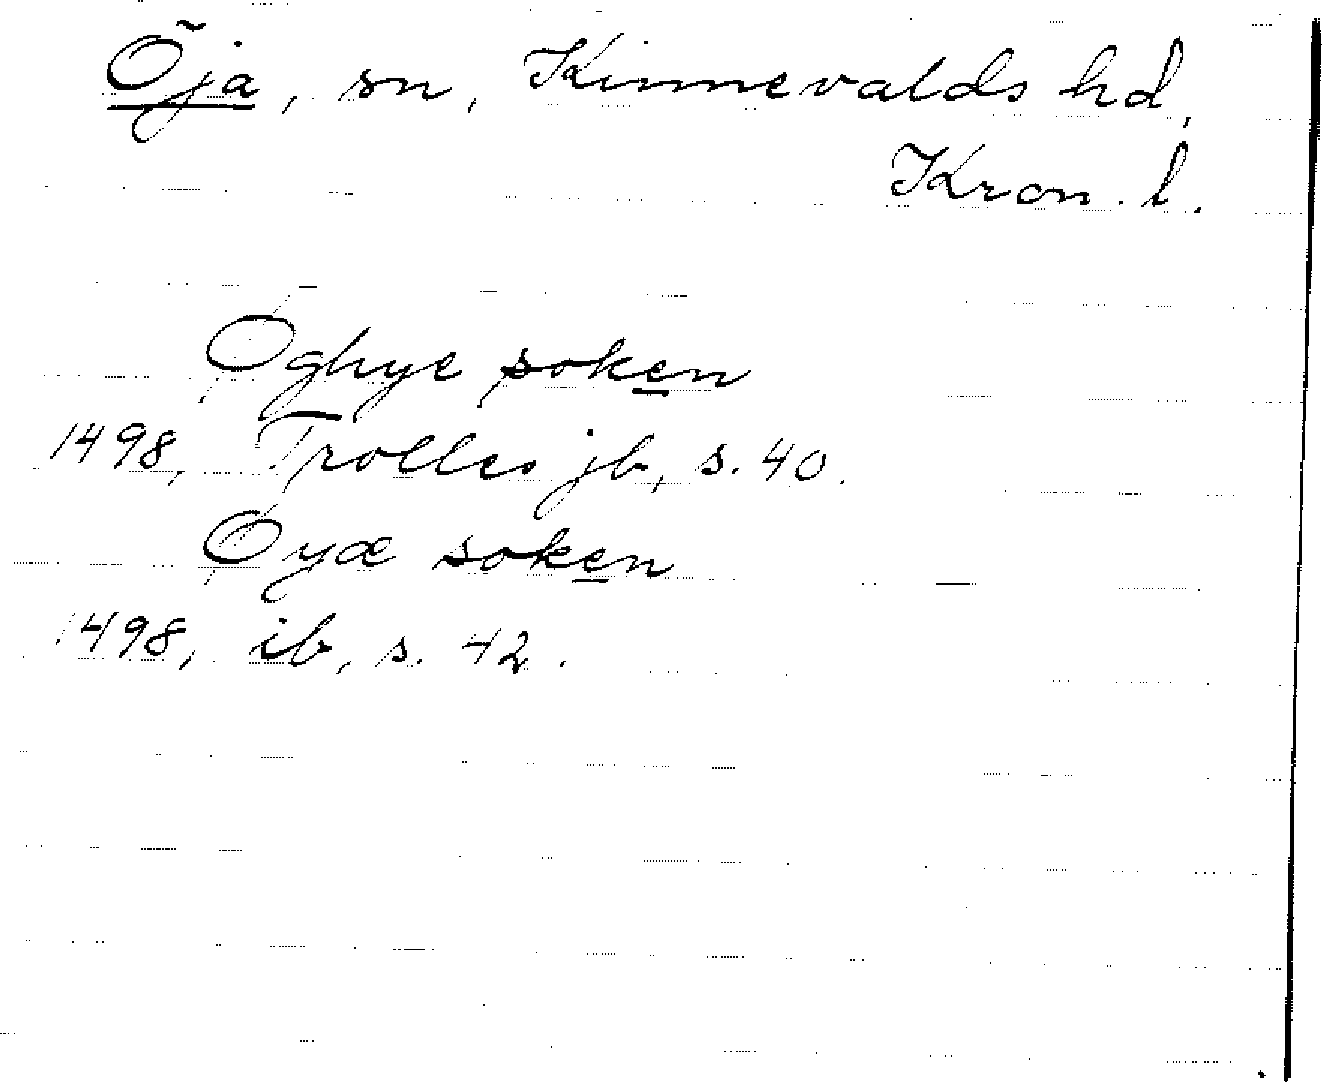 Öja, sn, Kinnevalds hd,
Kron. l.
Øghye soken
1498, Trolles jb, s. 40.
Øyæ soken
1498, ib, s. 42.